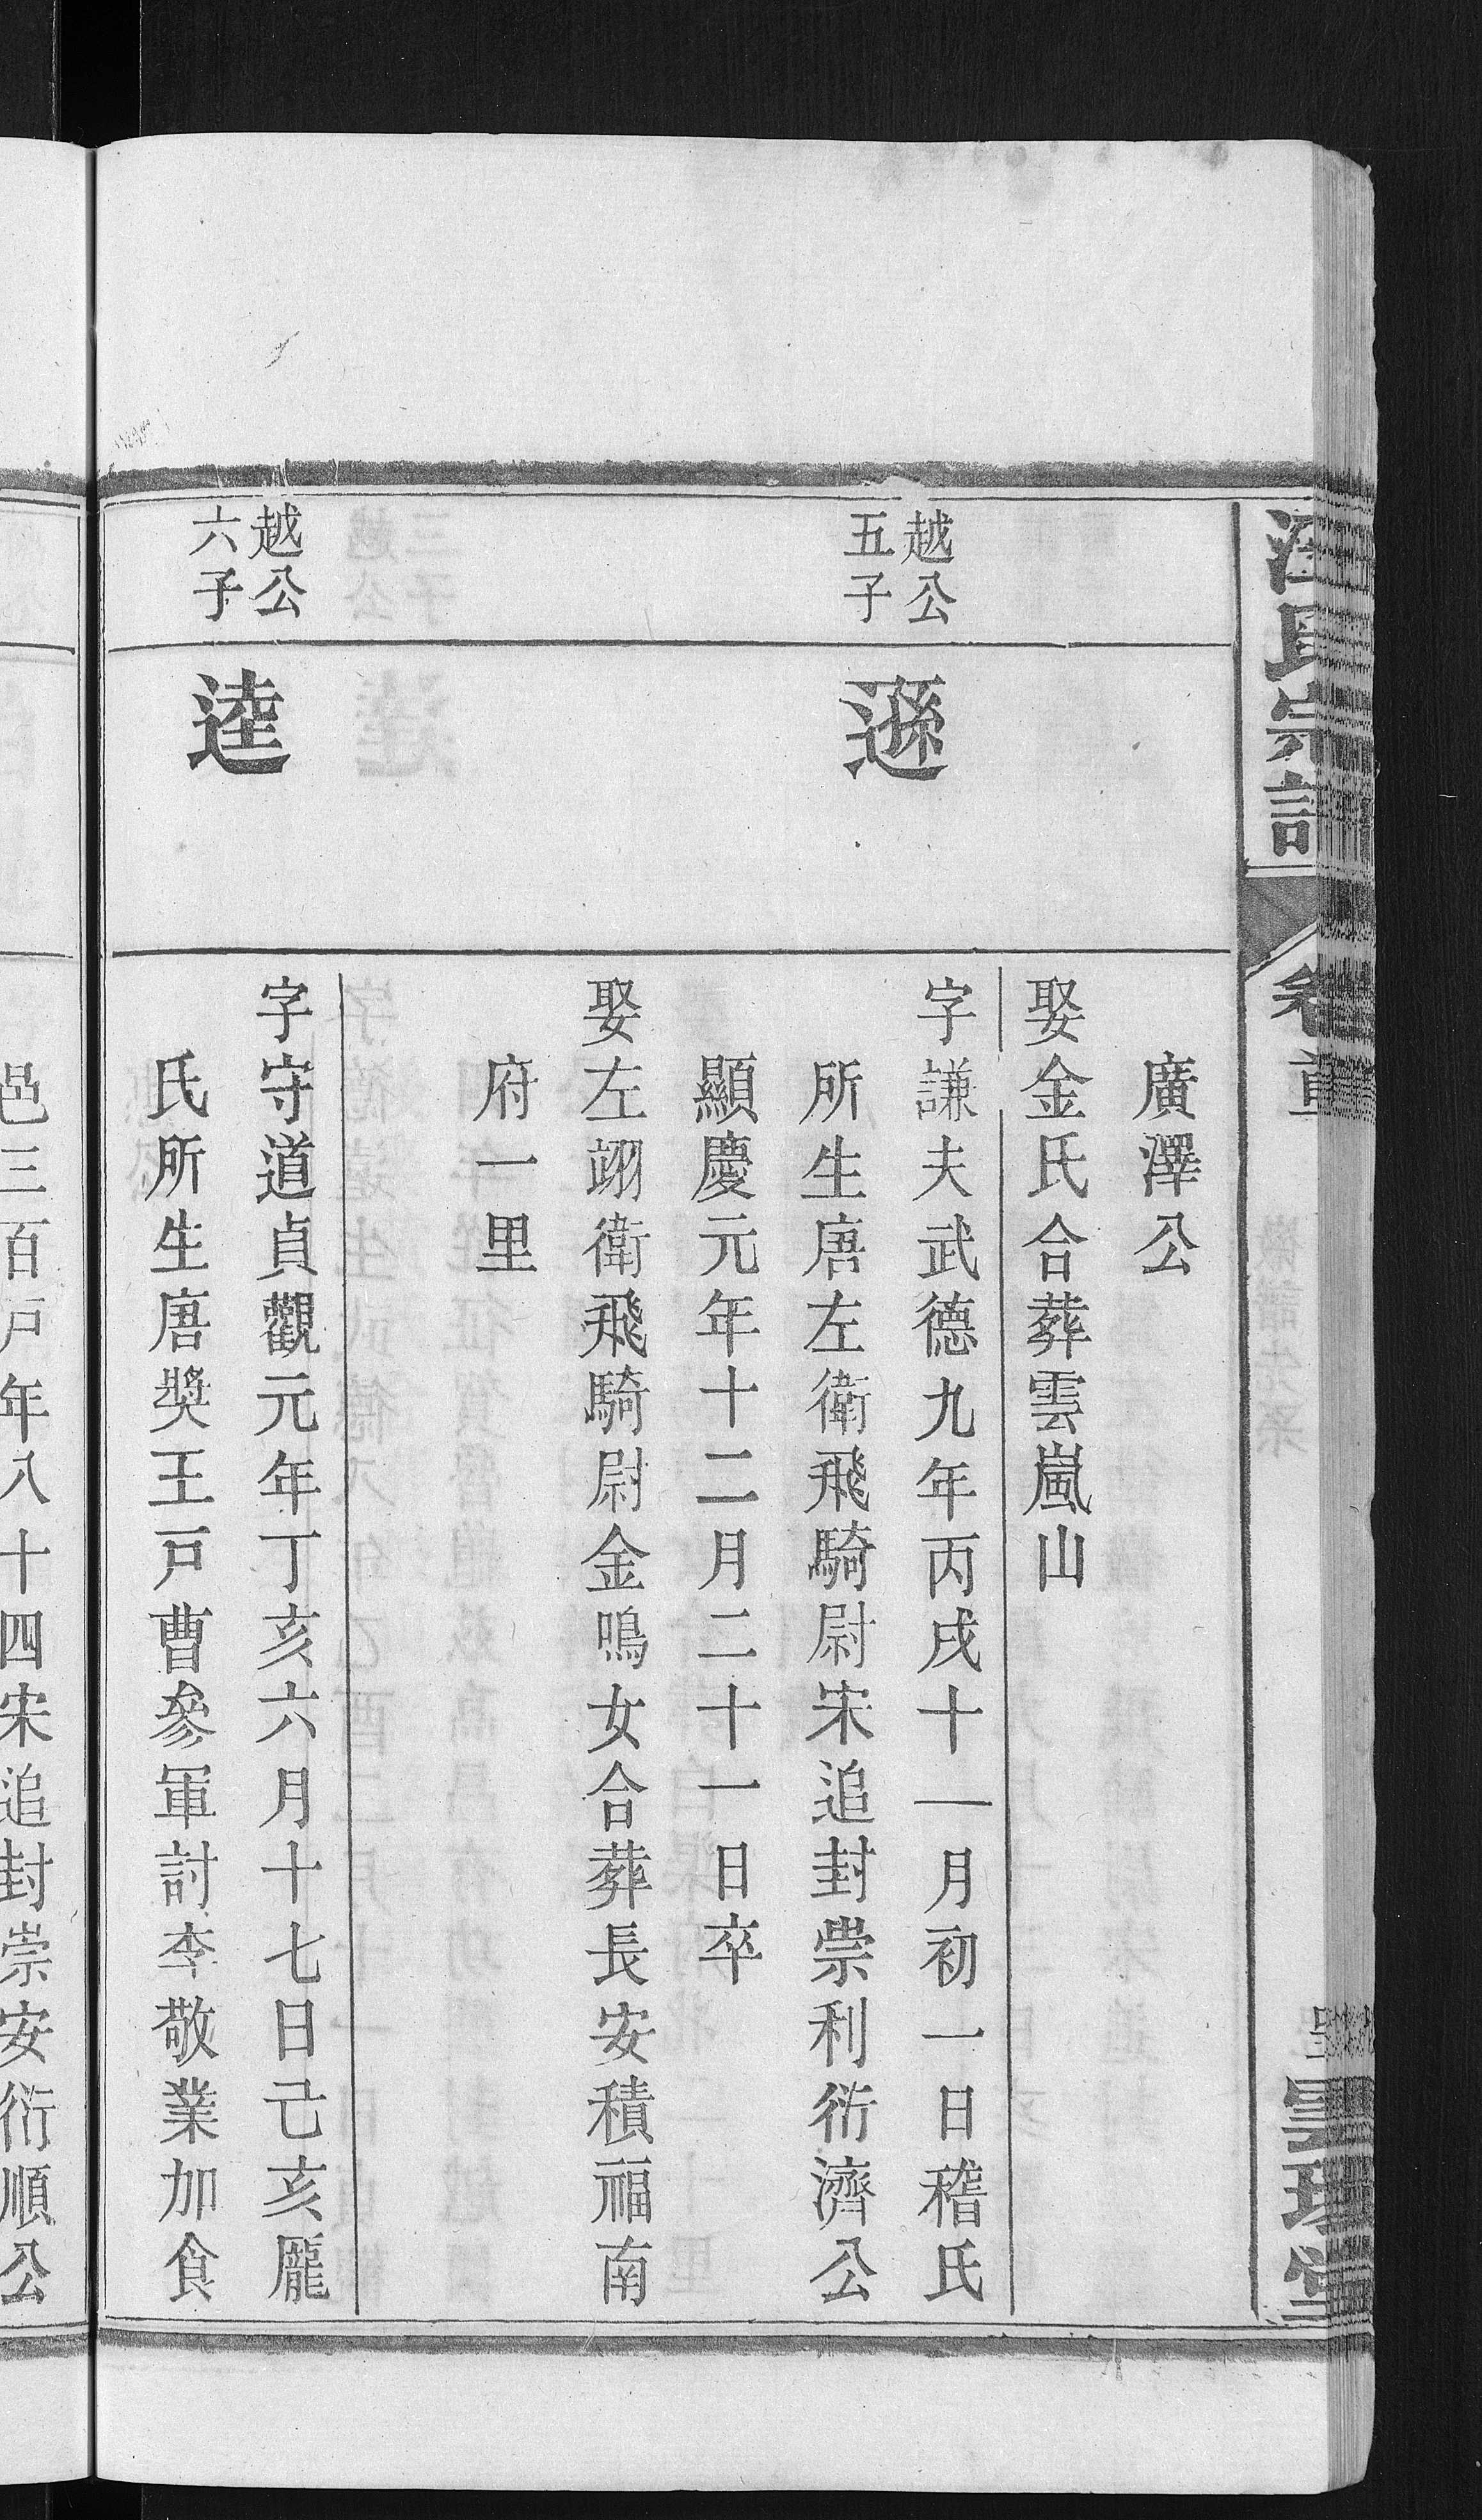 汪氏宗譜
卷首
廣澤公
娶金氏合葬雲嵐山
越公
五子
遜
字謙夫武德九年丙戌十一月初一日稽氏
所生唐左衛飛騎尉宋追封崇利衍濟公
顯慶元年十二月二十一日卒
娶左翊衛飛騎尉金鳴女合葬長安積福南
府一里
越公
六子
逵
字守道貞觀元年丁亥六月十七日己亥龐
氏所生唐獎王戸曹參軍討李敬業加食
邑三百戸年八十四宋追封崇安衍順公